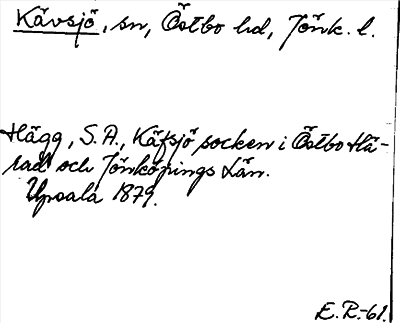 Kävsjö, sn, Östbo hd, Jönk. l.
Hägg, S.A., Käfsjö socken i Östbo Hä-
rad och Jönköpings Län.
Upsala 1879.
E.R.-61.